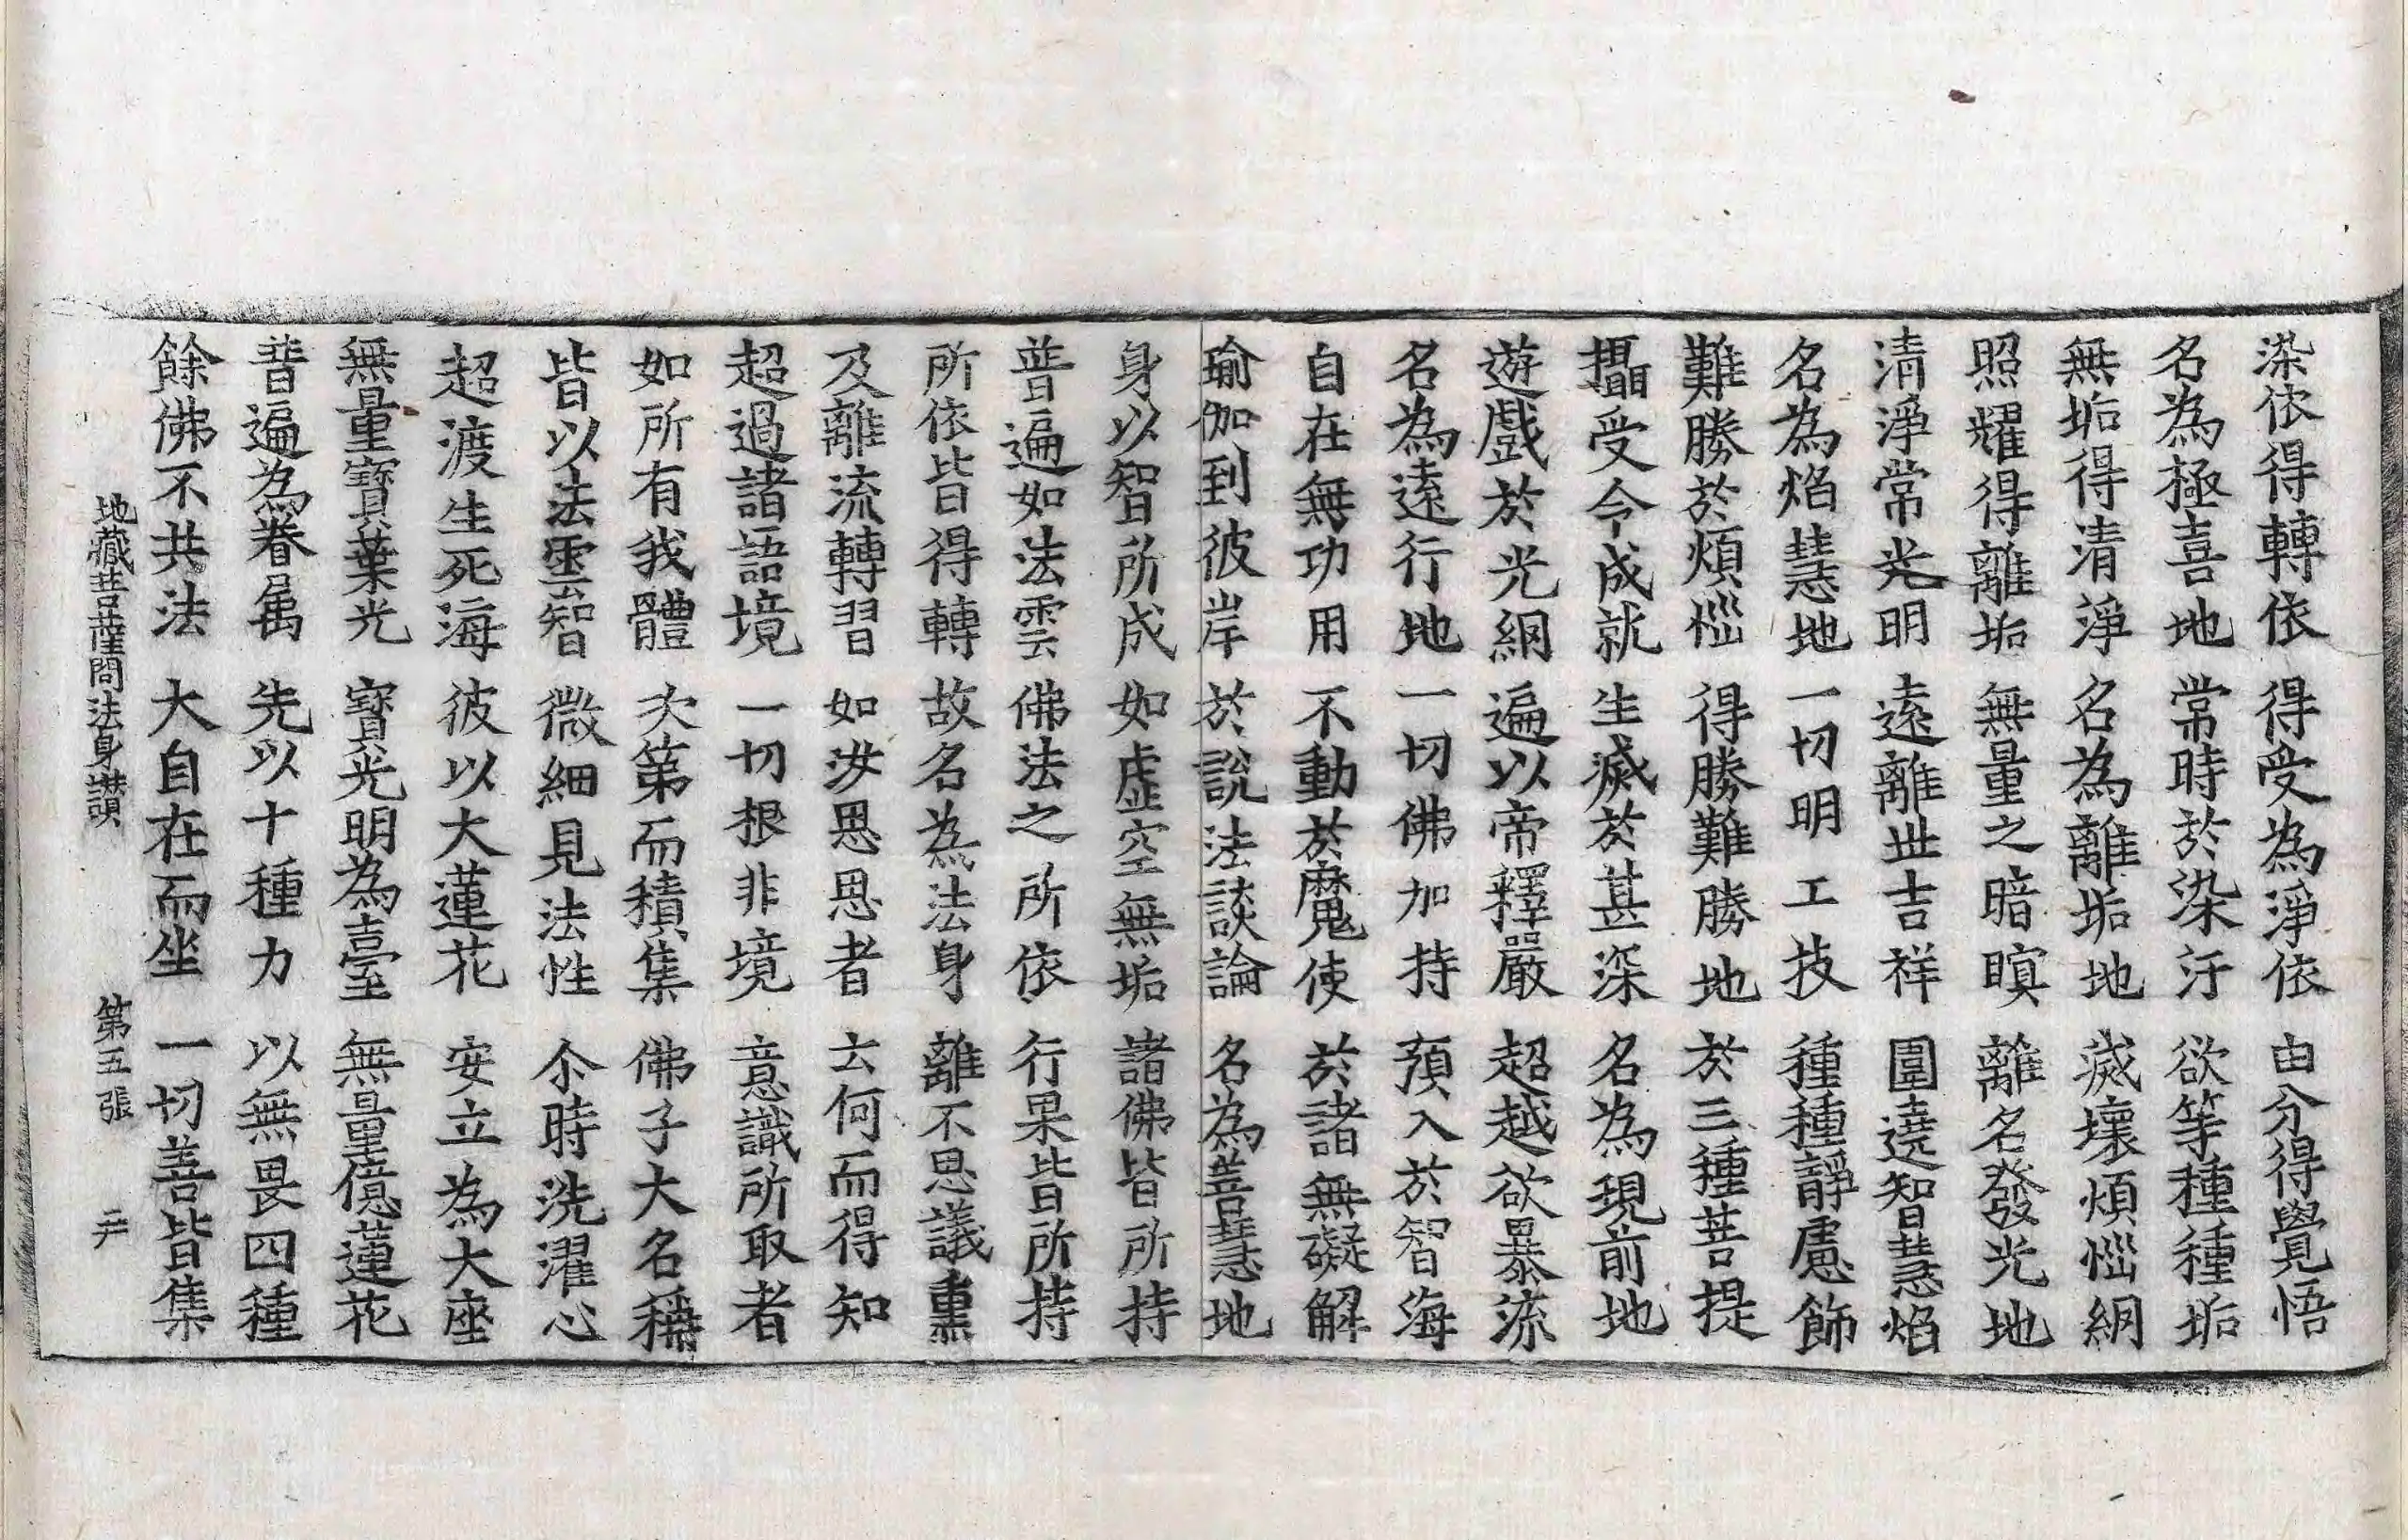 染依得轉依　得受為淨依　由分得覺悟
名為極喜地　常時於染汙　欲等種種垢
無垢得清淨　名為離垢地　滅壞煩惱網
照耀得離垢　無量之暗瞑　離名發光地
清淨常光明　遠離世吉祥　圍遶智慧焰
名為焰慧地　一切明工技　種種靜慮飾
難勝於煩惱　得勝難勝地　於三種菩提
攝受令成就　生滅於甚深　名為現前地
遊戲於光網　遍以帝釋嚴　超越欲暴流
名為遠行地　一切佛加持　預入於智海
自在無功用　不動於魔使　於諸無礙解
瑜伽到彼岸　於說法談論　名為善慧地
身以智所成　如虛空無垢　諸佛皆所持
普遍如法雲　佛法之所依　行果皆所持
所依皆得轉　故名為法身　離不思議熏
及離流轉習　如汝思思者　云何而得知
超過諸語境　一切根非境　意識所取者
如所有我體　次第而積集　佛子大名稱
皆以法雲智　微細見法性　尒時洗濯心
超渡生死海　彼以大蓮花　安立為大座
無量寶葉光　寶光明為臺　無量億蓮花
普遍為眷属　先以十種力　以無畏四種
餘佛不共法　大自在而坐　一切善皆集
地藏菩薩問法身讚　第五張